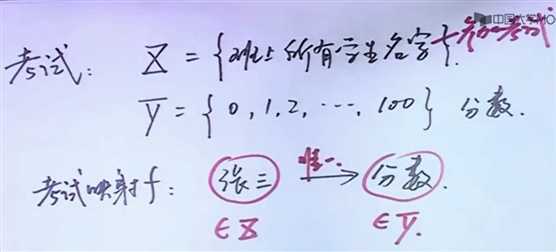 中国大学MO
考试: X = {班上所有学生名字} 参加考试
Y = {0, 1, 2, ..., 100} 分数.
考试映射f: 张三 唯一 → 分数.
∈X ∈Y.